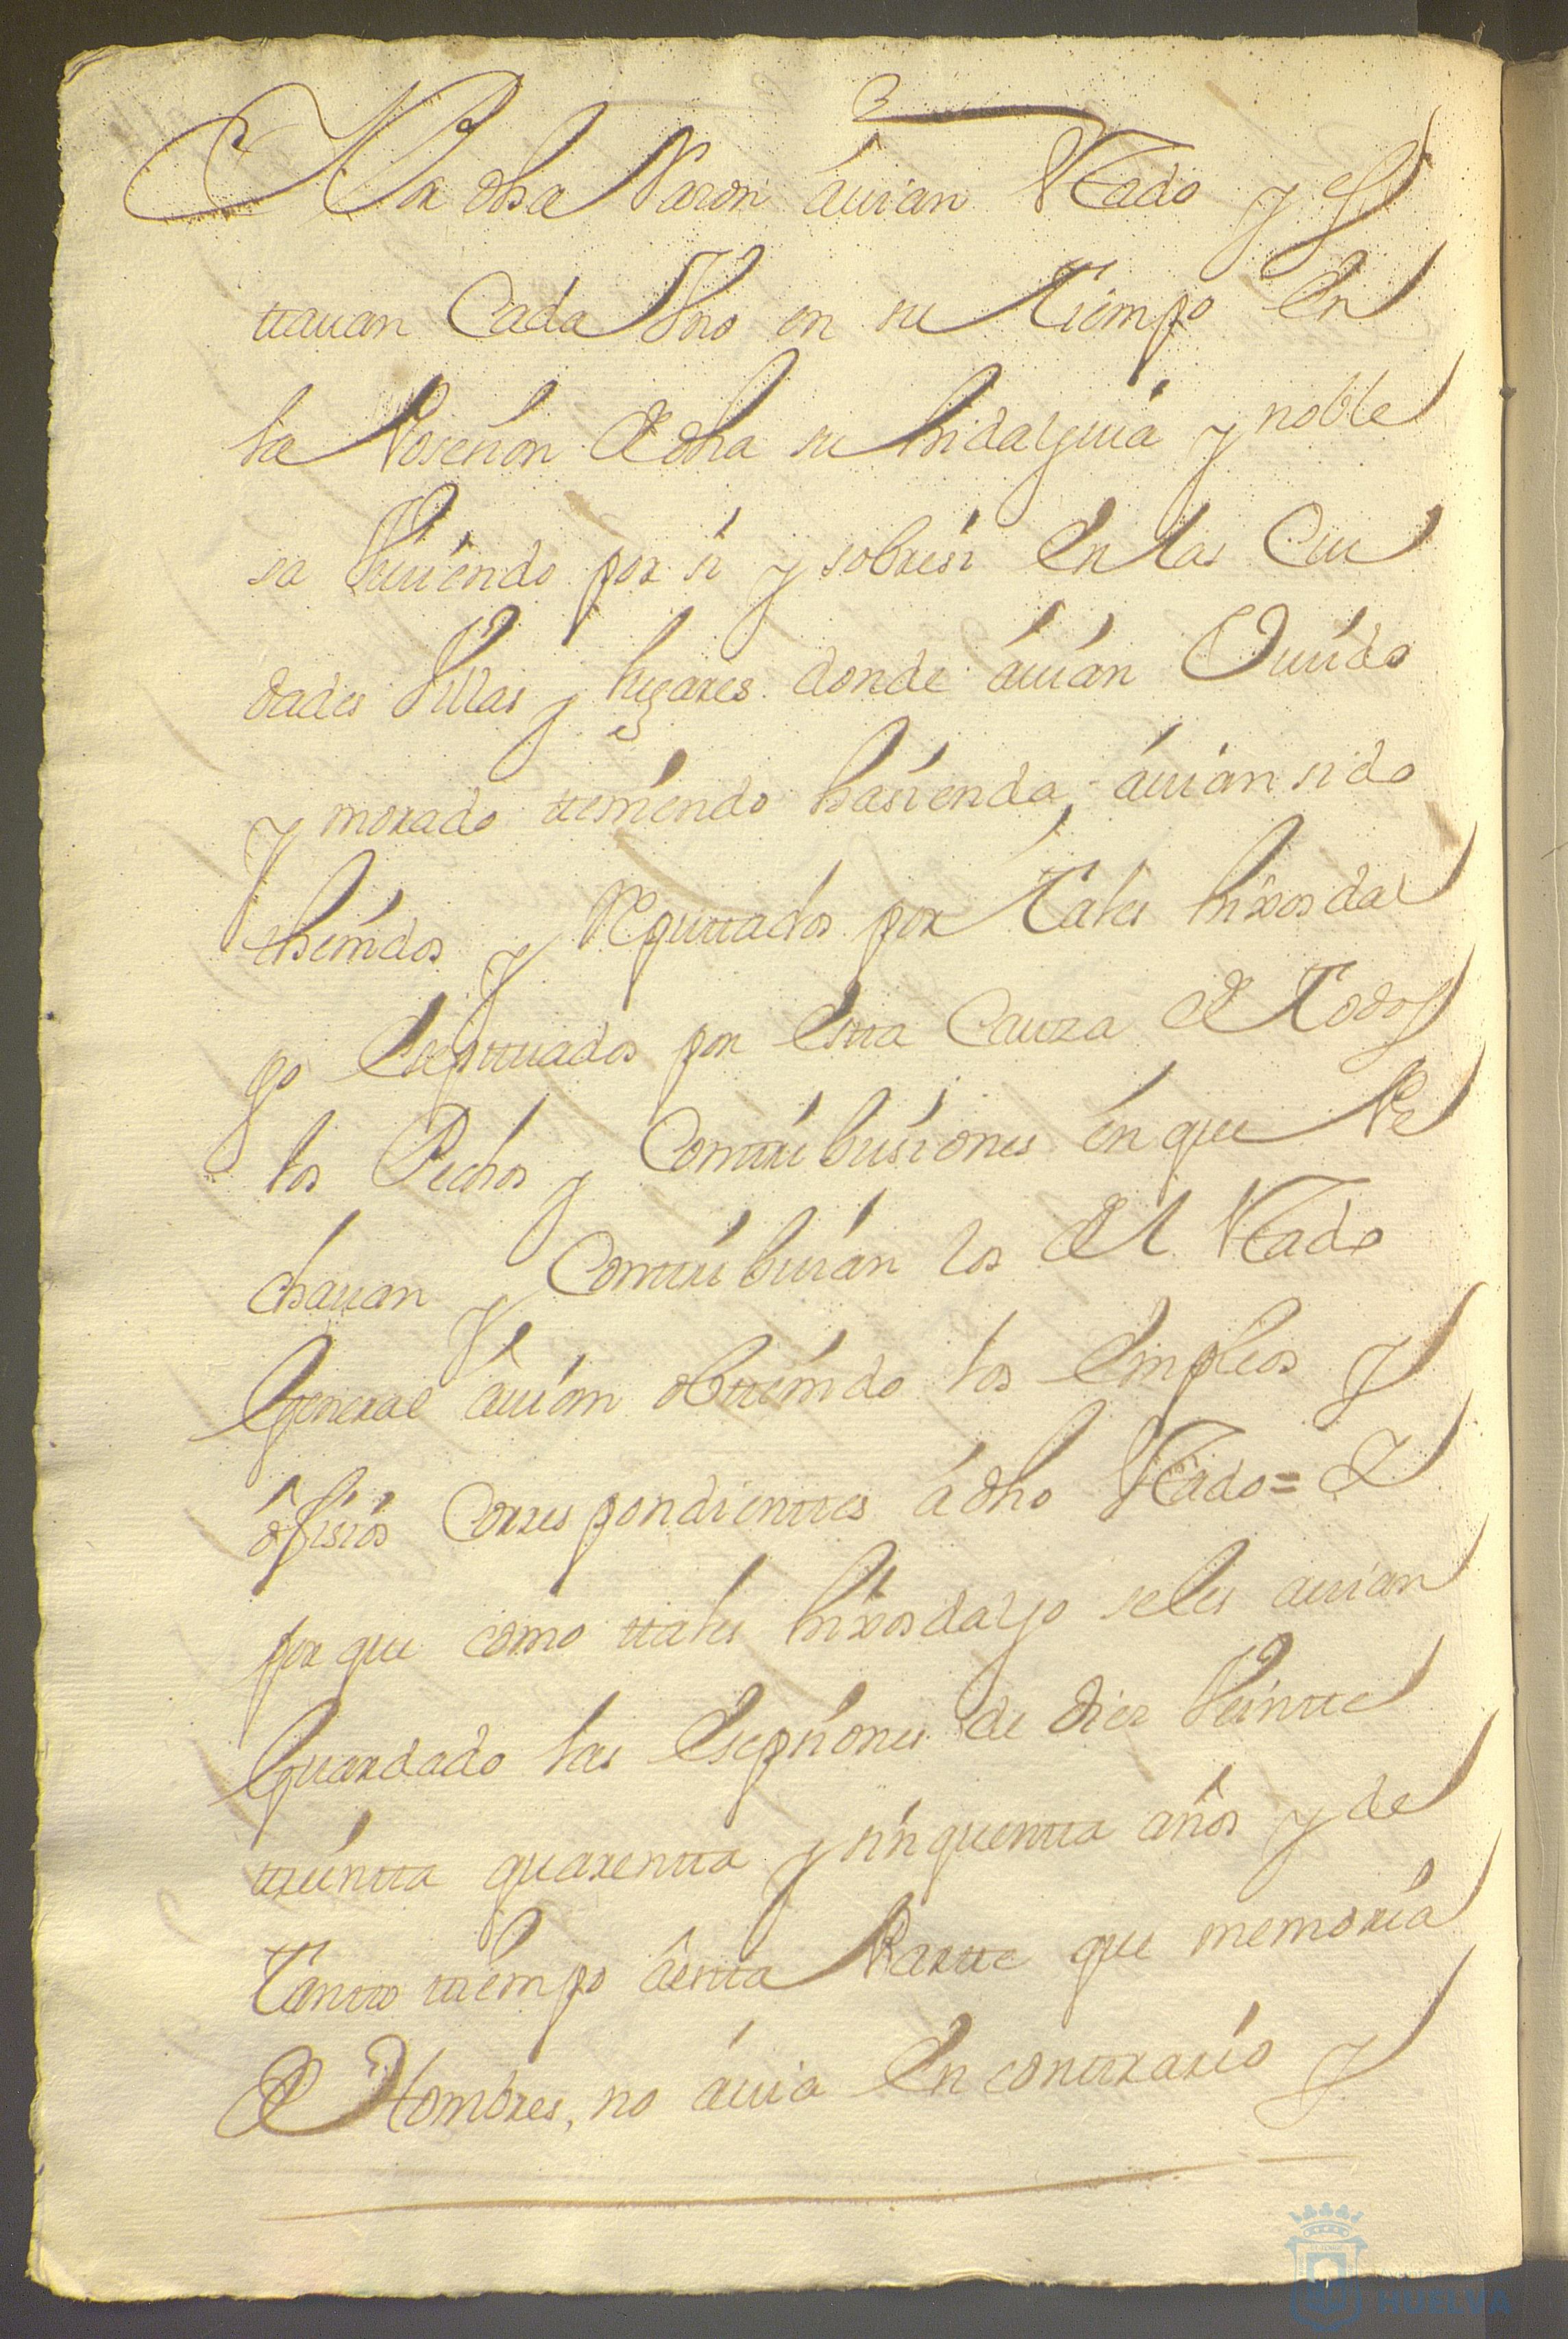 Por dha Varon auian Estado y es
ttauan Cada Vno en su Tiempo En
la Posesion de dha su hidalguia y noble
sa Viuiendo por si y sobresi En las Ciu
dades Villas y lugares donde auian Viuido
y morado tteniendo hasienda, auian sido
thenidos y Reputtados por Tales hixosdal
go Eseptuados por Estta Cauza de Todos
los Pechos y Conttribusiones en que Pe
chauan y Conttribuian los del Estado
General auian obttenido los Empleos y
ofisios Correspondienttes a dho Estado = Y
porque como ttales hixosdalgo seles auian
Guardado las Esepsiones de Diez Veintte
ttreintta quarentta y sinquentta años y de
Tantto ttiempo aestta Partte que memoria
de Hombres, no auia En conttrario y
HUELVA